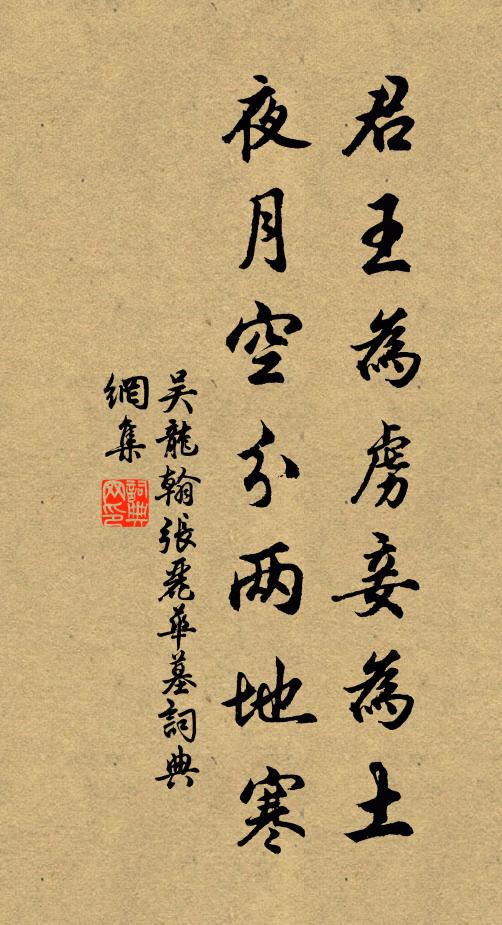 君王為虜妾為土
夜月空分两地寒
吴龍翰張麗華墓詞典
網集
詞典
网印